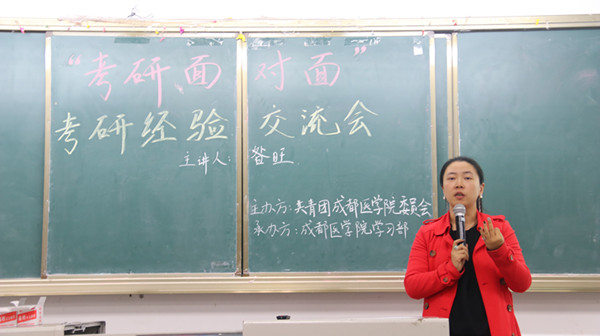 "考研、面对面"
考研经验交流会
主讲人: 昝旺
主办方:共青团成都医学院委员会
承办方:成都医学院学习部